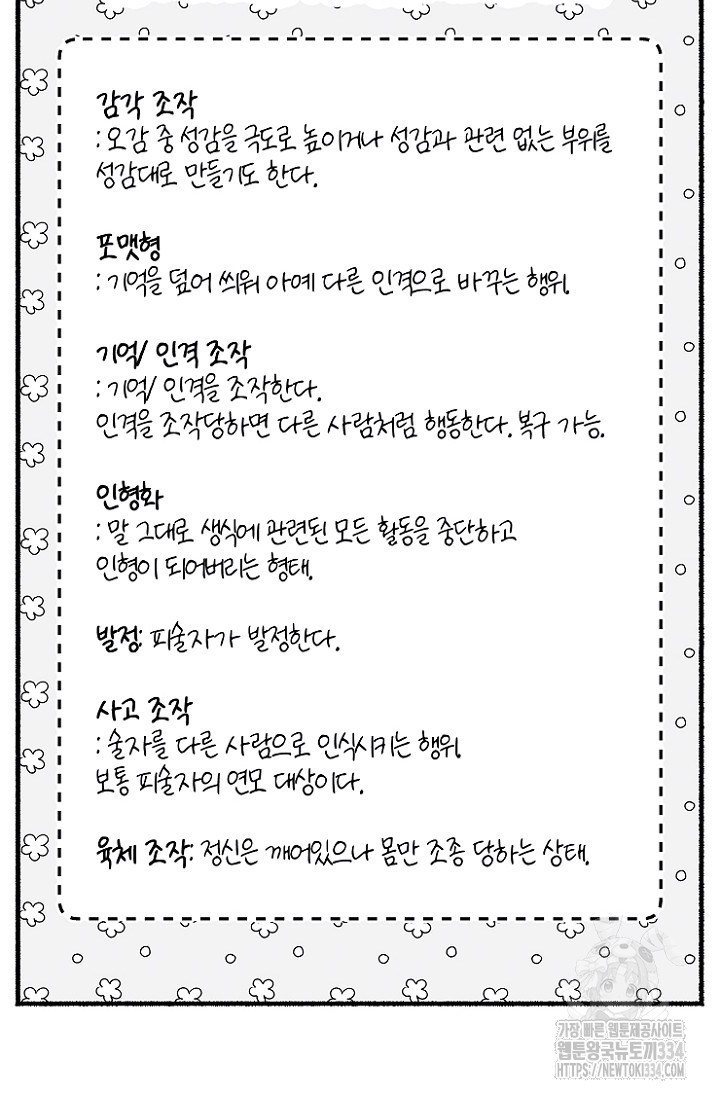 감각 조작
: 오감 중 성감을 극도로 높이거나 성감과 관련 없는 부위를
성감대로 만들기도 한다.
포맷형
: 기억을 덮어 씌워 아예 다른 인격으로 바꾸는 행위.
기억/ 인격 조작
: 기억/ 인격을 조작한다.
인격을 조작당하면 다른 사람처럼 행동한다. 복구 가능.
인형화
: 말 그대로 생식에 관련된 모든 활동을 중단하고
인형이 되어버리는 형태.
발정: 피술자가 발정한다.
사고 조작
: 술자를 다른 사람으로 인식시키는 행위.
보통 피술자의 연모 대상이다.
육체 조작: 정신은 깨어있으나 몸만 조종 당하는 상태.
가장 빠른 웹툰제공사이트
웹툰왕국뉴토끼334
HTTPS://NEWTOKI334.COM